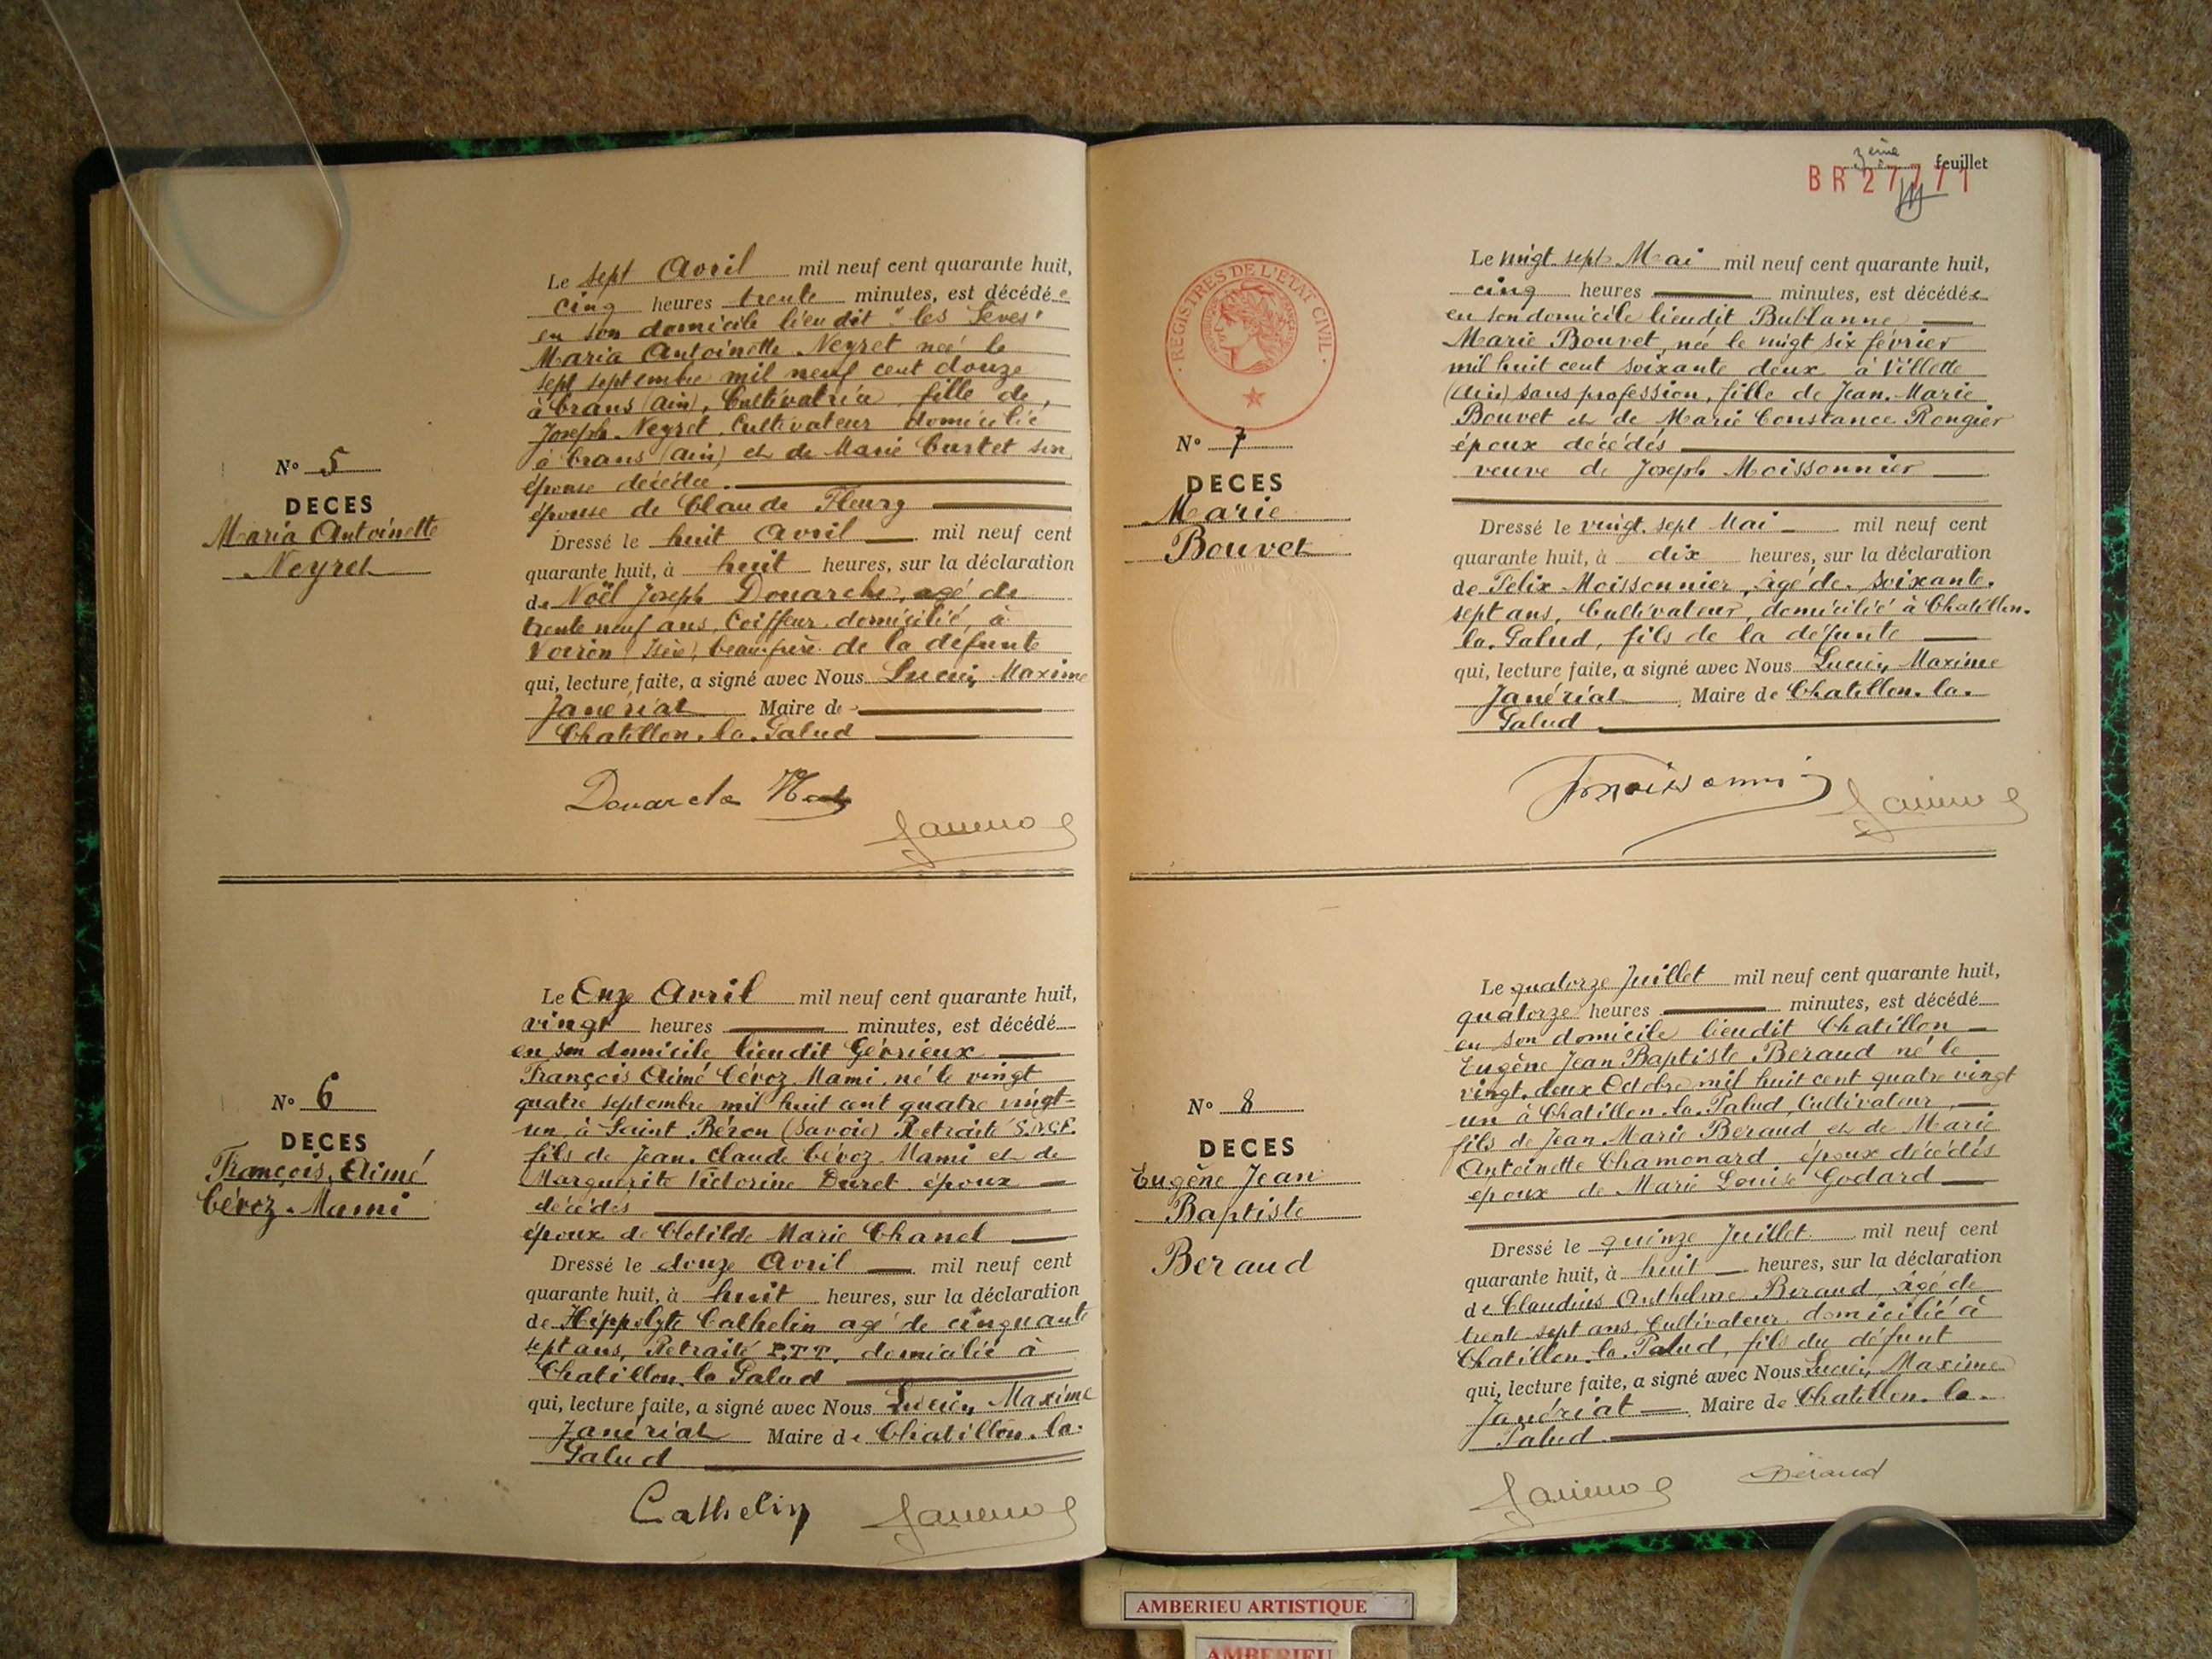 N° 5
DECES
Maria Antoinette
Neyret
Le sept Avril mil neuf cent quarante huit,
cinq heures trente minutes, est décédée
en son domicile lieudit "les Sèves"
Maria Antoinette Neyret née le
sept septembre mil neuf cent douze
à Crans (Ain), Cultivatrice, fille de
Joseph Neyret, Cultivateur domicilié
à Crans (Ain) et de Marie Curtet son
épouse décédée.
épouse de Claude Fleury
Dressé le huit Avril mil neuf cent
quarante huit, à huit heures, sur la déclaration
de Noël Joseph Douarche, agé de
trente neuf ans, Coiffeur domicilié, à
Voiron (Isère), beau-frère de la défunte
qui, lecture faite, a signé avec Nous Lucien Maxime
Janériat Maire de
Chatillon-la-Palud
N° 6
DECES
François Aimé
Cévoz-Mami
Le Onze Avril mil neuf cent quarante huit,
vingt heures minutes, est décédé
en son domicile lieudit Gévrieux
François Aimé Cévoz-Mami, né le vingt
quatre septembre mil huit cent quatre vingt-
un à Saint Béron (Savoie) Retraité S.N.C.F.
fils de Jean-Claude Cévoz-Mami et de
Marguerite Victorine Duret époux
décédés
époux de Clotilde Marie Chanel
Dressé le douze Avril mil neuf cent
quarante huit, à huit heures, sur la déclaration
de Hippolyte Cathelin agé de cinquante
sept ans, Retraité P.T.T. domicilié à
Chatillon-la-Palud
qui, lecture faite, a signé avec Nous Lucien Maxime
Janériat Maire de Chatillon-la-
Palud
Cathelin
3ème feuillet
BR 27771
REGISTRES DE L'ETAT CIVIL
N° 7
DECES
Marie
Bouvet
Le vingt sept Mai mil neuf cent quarante huit,
cinq heures minutes, est décédée
en son domicile lieudit Bublanne
Marie Bouvet, née le vingt six février
mil huit cent soixante deux à Villette
(Ain) sans profession, fille de Jean-Marie
Bouvet et de Marie Constance Rongier
époux décédés
veuve de Joseph Moissonnier
Dressé le vingt-sept Mai mil neuf cent
quarante huit, à dix heures, sur la déclaration
de Félix Moissonnier, agé de soixante-
sept ans, Cultivateur, domicilié à Chatillon-
la-Palud, fils de la défunte
qui, lecture faite, a signé avec Nous Lucien Maxime
Janériat Maire de Chatillon-la-
Palud
N° 8
DECES
Eugène Jean
Baptiste
Beraud
Le quatorze Juillet mil neuf cent quarante huit,
quatorze heures minutes, est décédé
en son domicile lieudit Chatillon
Eugène Jean Baptiste Beraud né le
vingt-deux Octobre mil huit cent quatre vingt
un à Chatillon-la-Palud, Cultivateur,
fils de Jean Marie Beraud et de Marie
Antoinette Chamonard époux décédés
époux de Marie Louise Godard
Dressé le quinze Juillet mil neuf cent
quarante huit, à huit heures, sur la déclaration
de Claudius Anthelme Beraud, agé de
trente sept ans, Cultivateur domicilié à
Chatillon-la-Palud, fils du défunt
qui, lecture faite, a signé avec Nous Lucien Maxime
Janériat Maire de Chatillon-la-
Palud
Béraud
AMBERIEU ARTISTIQUE
AMBERIEU